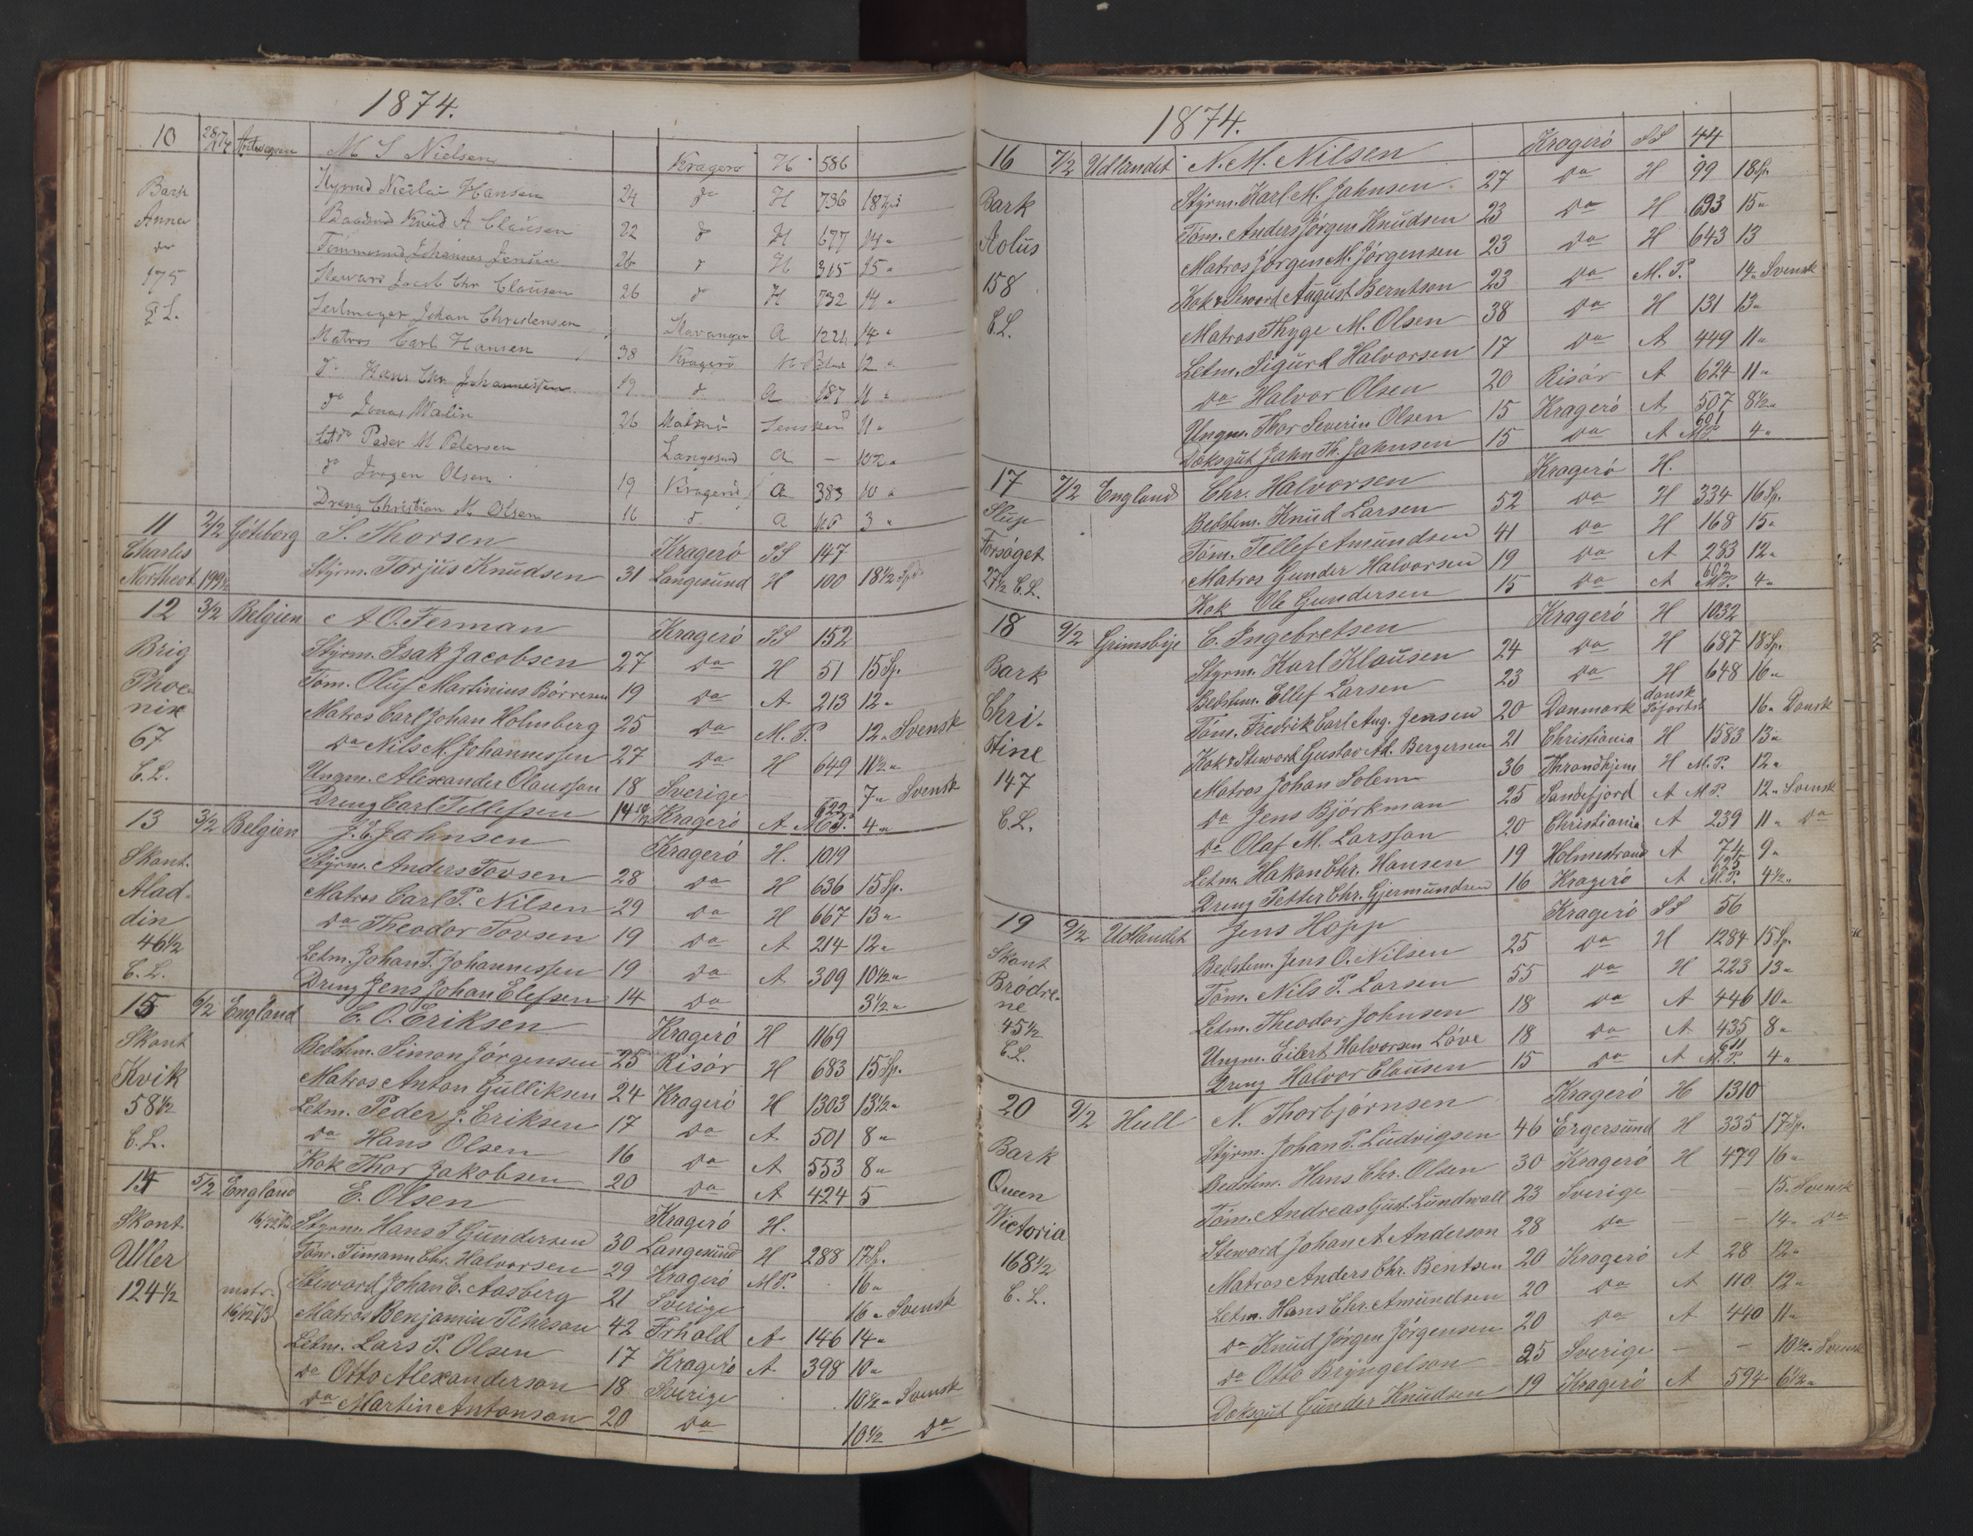 1874.
10 28/1 74 Antwerpen M S Nielsen Kragerø H 586
Styrmd Nicolai Hansen 24 do H 736 18
Bark Baadsmd Knud A Clausen 22 do H 677 14"
Anna Tømmermd Johannes Jensen 26 do H 315 15"
Steward Jacob Chr Clausen 26 do H 732 14"
175 Seilmager Johan Christensen Stavanger A 14"
C.L. Matros Carl Hansen 38 Kragerø 12"
do Hans Chr Johannessen 19 do A 187 11"
do Jonas Malin 26 Malmö 11"
Letm Peder M Petersen Langesund A — 10½"
do Jørgen Olsen 19 Kragerø A 383 10"
Dreng Christian N Olsen 16 do A 3"
11 2/2 Göteborg S. Thorsen Kragerø SS 147
Charles Northcot 199½ Styrm. Torjus Knudsen 31 Langesund H 100 18½ Spd.
12 3/2 Belgien A. O. Ferman Kragerø SS 152
Brig Styrm. Isak Jacobsen 27 do H 51 15 Sp.
Phoe- Töm. Oluf Martinius Börresen 19 do A 213 12"
nix Matros Carl Johan Holmberg 25 do M.P. 12" Svensk
67 do Nils M. Johannessen 27 do H 649 11½"
C.L. Ungm. Alexander Olausson 18 Sverige 7" Svensk
Dreng Carl Tellefsen 14 10/12 Kragerø A 622 M.P. 4"
13 3/2 Belgien J. E. Jahnsen Kragerø H. 1019
Skont. Styrm. Anders Tovsen 28 do H 636 15 Sp.
Alad- Matros Carl P. Nilsen 29 do H 667 13"
din do Theodor Tovsen 19 do A 214 12"
46½ Letm. Johan F. Johannessen 19 do A 309 10½"
C.L. Dreng Jens Johan Elefsen 14 do 3½"
15 6/2 England E. O. Eriksen Kragerø H 1169
Skont Bedstm. Simon Jørgensen 25 Risør H 683 15 Sp.
Kvik Matros Anton Gulliksen 24 Kragerø H 1303 13½"
58½ Letm. Peder J. Eriksen 17 do A. 501 8"
C.L. do Hans Olsen 16 do A 553 8"
Kok Thor Jakobsen 20 do A 424 5
14 5/2 England E. Olsen Kragerø H.
Skont. Styrm. Hans J. Gundersen 30 Langesund H 288 17 Sp.
Uller Töm. Timann Chr. Halvorsen 29 Kragerø M.P. 16"
124½ Steward Johan E. Aasberg 21 Sverige 16" Svensk
mstr. 16/12 73 Matros Benjamin Pehrson 42 Frhald A 146 14"
Letm. Lars P. Olsen 17 Kragerø A 398 10"
do Otto Alexanderson 18 Sverige 10½" Svensk
do Martin Antonson 20 do 10½ do
1874.
16 7/2 Udlandet N. M. Nilsen Kragerø SS 44
Styrm. Karl M. Jahnsen 27 do H 99 18 Sp.
Bark Töm. Anders Jörgen Knudsen 23 do H 693 15"
Æolus Matros Jörgen M. Jørgensen 23 do H 643 13
158 Kok & Steward August Berntson 23 do M.P. 14" Svensk
C.L. Matros Thyge M. Olsen 38 do H 131 13"
Letm. Sigurd Halvorsen 17 do A 449 11"
do Halvor Olsen 20 Risör A 624 11"
Ungm. Thor Severin Olsen 15 Kragerø A. 507 8½"
Däksgut Jahn Th. Jahnsen 15 do A 601 M.P. 4"
17 7/2 England Chr. Halvorsen Kragerø H.
Slup Bedstm. Knud Larsen 52 do H 334 16 Sp.
Forsøget Töm. Tellef Amundsen 41 do H 168 15"
27½ C.L. Matros Gunder Halvorsen 19 do A 283 12"
Kok Ole Gundersen 15 do A 602 M.P. 4"
18 9/2 Grimsbye C. Ingebretsen Kragerø H 1032
Styrm. Karl Klausen 24 do H 687 18 Sp.
Bark Bedstm. Ellef Larsen 23 do H 648 16"
Chri- Töm. Fredrik Carl Aug. Jensen 20 Danmark dansk 16" Dansk
stine Kok & Steward Gustav Ad. Bergersen 21 Christiania H 1583 13"
147 Matros Johan Solem 36 Throndhjem H M.P. 12"
do Jens Bjørkman 25 Sandefjord A M.P. 12" Svensk
C.L. do Olaf M. Larsson 20 Christiania A 239 11" do
Letm. Hakon Chr. Hansen 19 Holmestrand A 74 9"
Dreng Petter Chr. Gjermundsen 16 Kragerø A M.P. 4½"
19 9/2 Udlandet Jens Hopp Kragerø SS 56
Skont Bedstm. Jens O. Nilsen 25 do H 1284 15 Sp.
Brödre- Töm. Nils P. Larsen 55 do H 223 13"
ne Letm. Theodor Johnsen 18 do A 446 10"
45½ Ungm. Eilert Halvorsen Löve 18 do A 435 8"
C.L. Dreng Halvor Clausen 15 do A 611 M.P. 4"
20 9/2 Hull N. Thorbjørnsen Kragerø H 1310
Styrm. Johan P. Ludvigsen 46 Egersund H 335 17 Sp.
Bark Bedstm. Hans Chr. Olsen 30 Kragerø H 479 16"
Queen Töm. Andreas Gust. Lundwall 23 Sverige — — 15" Svensk
Victoria Steward Johan A. Anderson 28 do — — 14" do
168½ Matros Anders Chr. Bentsen 20 Kragerø A 28 12"
C.L. Letm. Hans Chr. Amundsen 20 do A 110 12"
do Knud Jörgen Jörgensen 20 do A 440 11"
do Otto Bryngelson 25 Sverige — — 10½" Svensk
Däksgut Gunder Knudsen 19 Kragerø A 594 6½"